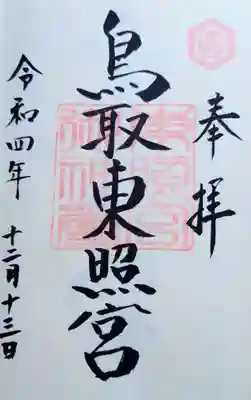 奉拝
鳥取東照宮
令和四年 十二月十三日